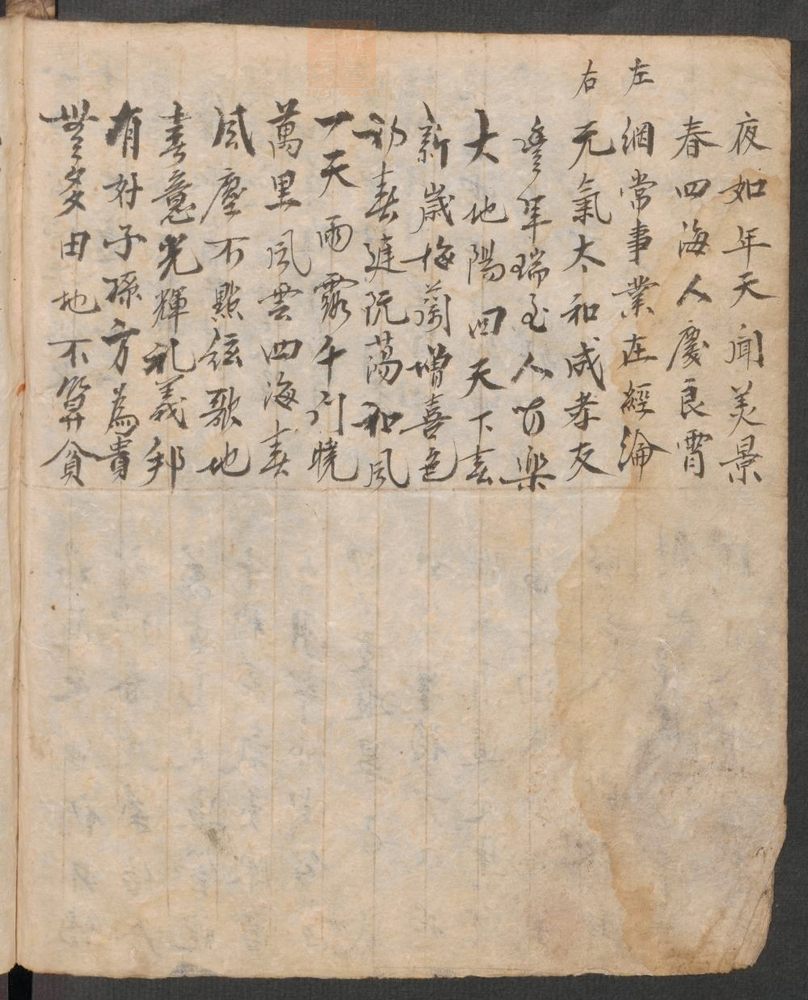 夜如年天開美景
春四海人慶良霄
左 綱常事業在經綸
右 元氣太和成孝友
豊年瑞至人皆樂
大地陽回天下春
新歲梅蘭增喜色
初春進阮蕩和風
一天雨露千門曉
萬里風雲四海春
風塵不點絃歌地
春意光輝礼義邦
有好子孫方為貴
無多田地不算貧